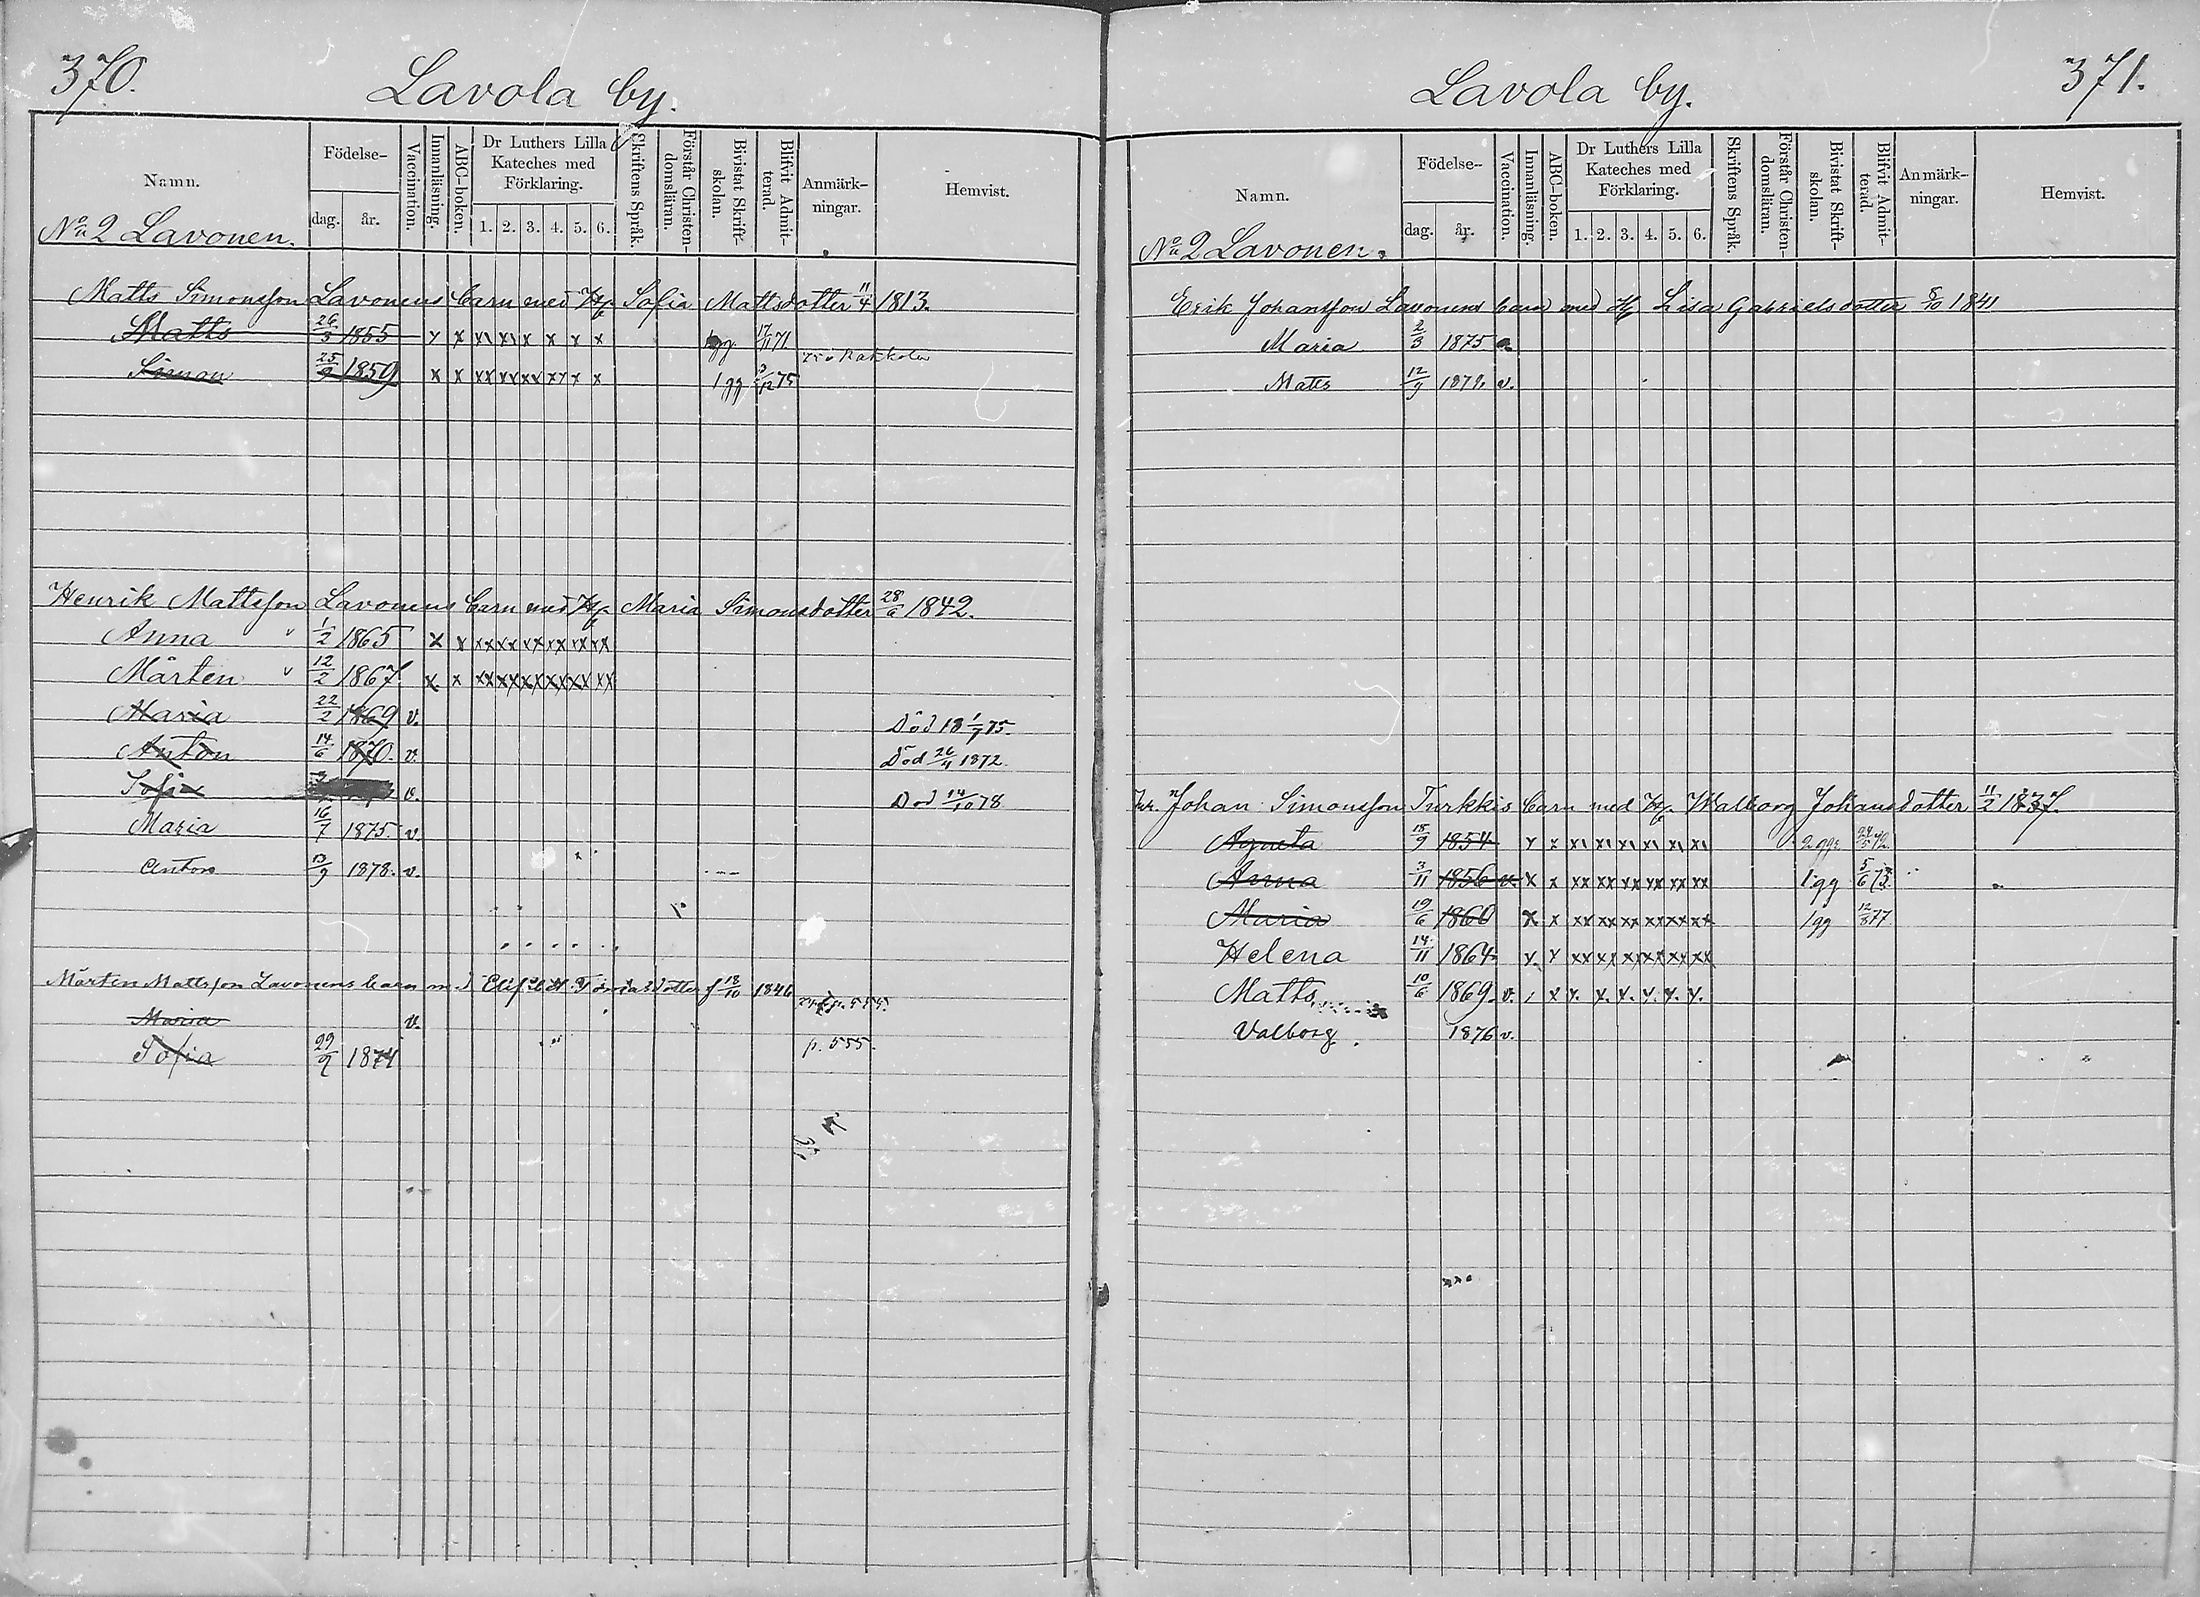 370.
Lavola by.
Namn.
Födelse-
dag. år.
Vaccination.
Innanläsning.
ABC-boken.
Dr Luthers Lilla Kateches med Förklaring.
1. 2. 3. 4. 5. 6.
Skriftens Språk.
Förstår Christen-domsläran.
Bivistat Skrift-skolan.
Blifvit Admit-terad.
Anmärk-ningar.
Hemvist.
No 2 Lavonen.
Matts Simonsson Lavonens barn med H Sofia Mattsdotter 11/4 1813.
Matts 26/3 1855 x x x x x x x x 1 gg 17/11 71
Simon 25/9 1859 x x xx xx xx xx x x 1 gg 3/12 75
Henrik Mattsson Lavonens barn med H Maria Simonsdotter 28/6 1842.
Anna v 1/2 1865 x x xx xx xx xx xx xx
Mårten v 12/2 1867. x x xx xx xx xx xx xx
Maria 22/2 1869 v. Död 18 1/7 75.
Anton 14/6 1870. v. Död 26/4 1872.
Sofia v. Död 14/10 78
Maria 16/7 1875. v.
Anton 13/9 1878. v.
Mårten Mattsson Lavonens barn m. Tomasdotter f 18/10 1846 p. 555.
Maria v.
Sofia 29/9 1874 p. 555.
371.
Lavola by.
Namn.
Födelse-
dag. år.
Vaccination.
Innanläsning.
ABC-boken.
Dr Luthers Lilla Kateches med Förklaring.
1. 2. 3. 4. 5. 6.
Skriftens Språk.
Förstår Christen-domsläran.
Bivistat Skrift-skolan.
Blifvit Admit-terad.
Anmärk-ningar.
Hemvist.
No 2 Lavonen.
Erik Johansson Lavonens barn med H Lisa Gabrielsdotter 8/10 1841
Maria 2/3 1875
Mats 12/9 1878. v.
Johan Simonsson Turkkis barn med H. Walborg Johansdotter 11/2 1837.
Agneta 18/9 1854 x x xx xx xx xx xx xx 2 ggr 24/5 72
Anna 3/11 1856 v. x x xx xx xx xx xx xx 1 gg 5/6 73.
Maria 19/6 1860 x x xx xx xx xx xx xx 1 gg 12/8 77
Helena 14/11 1864 x. x xx xx xx xx xx xx
Matts 10/6 1869. v. x x. x. x. x. x. x.
Valborg. 1876 v.